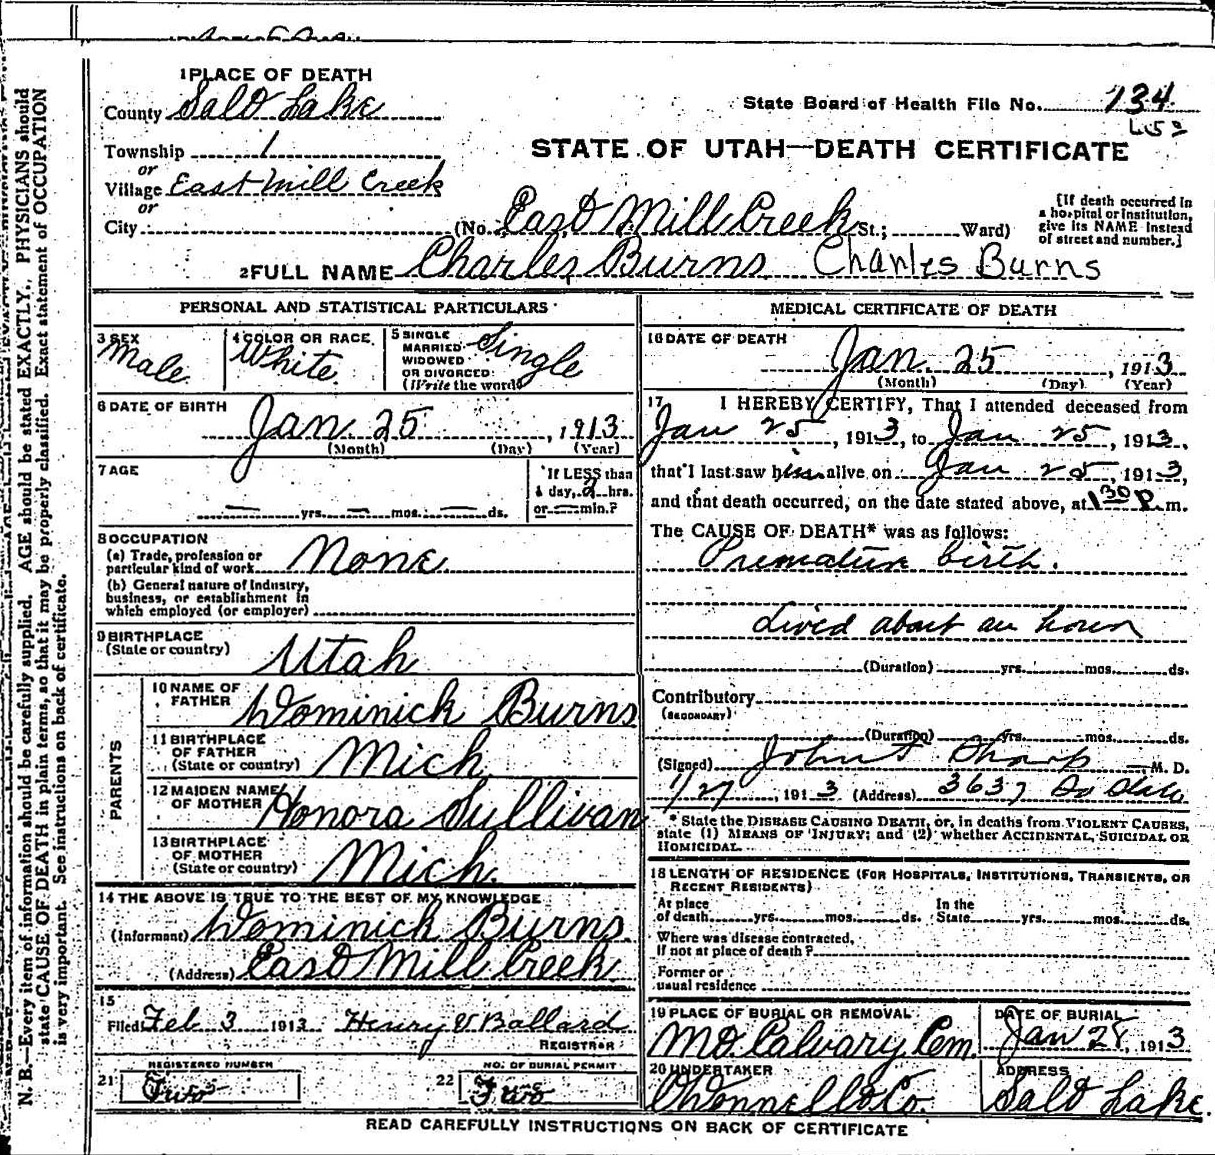 1 PLACE OF DEATH
County Salt Lake
State Board of Health File No. 134
Township 1
STATE OF UTAH—DEATH CERTIFICATE
or
Village East Mill Creek
or
City (No. East Mill Creek St.; Ward)
[If death occurred in a hospital or institution, give its NAME instead of street and number.]
2 FULL NAME Charles Burns Charles Burns
PERSONAL AND STATISTICAL PARTICULARS
3 SEX
Male
4 COLOR OR RACE
White
5 SINGLE
MARRIED
WIDOWED
OR DIVORCED
(Write the word)
Single
6 DATE OF BIRTH
Jan 25, 1913
(Month) (Day) (Year)
7 AGE
— yrs. — mos. — ds.
If LESS than
1 day, 2 hrs.
or — min.?
8 OCCUPATION
(a) Trade, profession or
particular kind of work None
(b) General nature of Industry,
business, or establishment in
which employed (or employer)
9 BIRTHPLACE
(State or country) Utah
PARENTS
10 NAME OF
FATHER Dominick Burns
11 BIRTHPLACE
OF FATHER
(State or country) Mich
12 MAIDEN NAME
OF MOTHER Honora Sullivan
13 BIRTHPLACE
OF MOTHER
(State or country) Mich.
14 THE ABOVE IS TRUE TO THE BEST OF MY KNOWLEDGE
(Informant) Dominick Burns.
(Address) East Mill Creek
15
Filed Feb 3 1913 Henry V Ballard
REGISTRAR
REGISTERED NUMBER
21 Two
NO. OF BURIAL PERMIT
22 Two
MEDICAL CERTIFICATE OF DEATH
16 DATE OF DEATH
Jan. 25, 1913
(Month) (Day) (Year)
17 I HEREBY CERTIFY, That I attended deceased from
Jan 25, 1913, to Jan 25, 1913,
that I last saw him alive on Jan 25, 1913,
and that death occurred, on the date stated above, at 1 30 P. m.
The CAUSE OF DEATH* was as follows:
Premature birth.
Lived about an hour
(Duration) yrs. mos. ds.
Contributory
(SECONDARY)
(Duration) yrs. mos. ds.
(Signed) John T Sharp M. D.
1/27, 1913 (Address) 3637 So State
* State the DISEASE CAUSING DEATH, or, in deaths from VIOLENT CAUSES,
state (1) MEANS OF INJURY; and (2) whether ACCIDENTAL, SUICIDAL OR
HOMICIDAL.
18 LENGTH OF RESIDENCE (FOR HOSPITALS, INSTITUTIONS, TRANSIENTS, OR
RECENT RESIDENTS)
At place
of death yrs. mos. ds.
In the
State yrs. mos. ds.
Where was disease contracted,
if not at place of death?
Former or
usual residence
19 PLACE OF BURIAL OR REMOVAL
Mt Calvary Cem
DATE OF BURIAL
Jan 28, 1913
20 UNDERTAKER
O'Donnell & Co.
ADDRESS
Salt Lake.
READ CAREFULLY INSTRUCTIONS ON BACK OF CERTIFICATE
N. B.—Every item of information should be carefully supplied. AGE should be stated EXACTLY. PHYSICIANS should
state CAUSE OF DEATH in plain terms, so that it may be properly classified. Exact statement of OCCUPATION
is very important. See instructions on back of certificate.